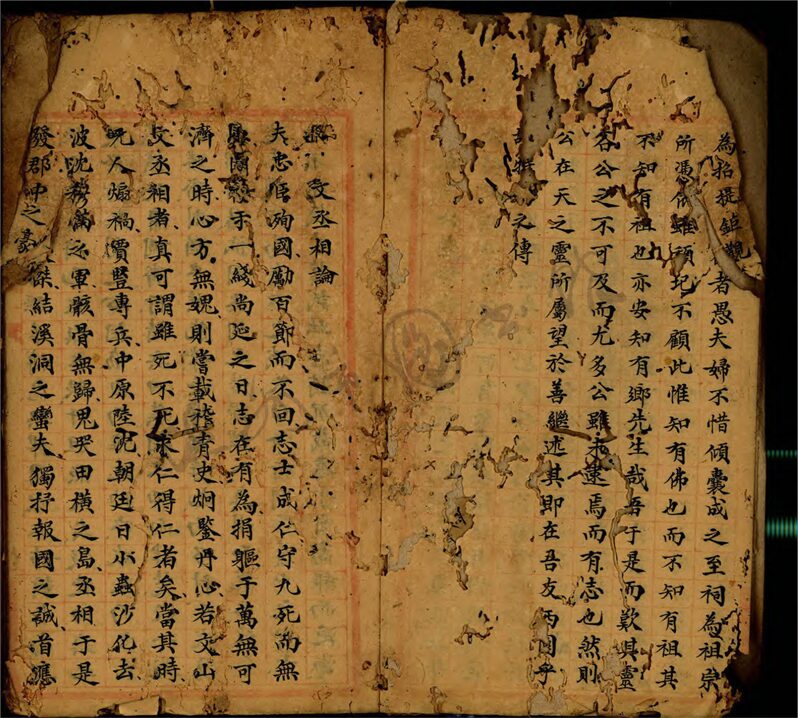 為招提鐘觀者愚夫婦不惜傾囊成之至祠為祖宗
所憑依雖頹圮不顧此惟知有佛也而不知有祖其
不知有祖也亦安知有鄉先生哉吾于是而歎其靈
各公之不可及而尤多公雖未遠焉而有志也然則
公在天之靈所屬望於善繼述其即在吾友丙月乎
之傳
文丞相論
夫忠臣殉國勵百節而不回志士成仁守九死而無
于一綫尚延之日志在有為捐軀于萬無可
濟之時心方無媿則當載稽青史炯鑒丹心若文山
文丞相者真可謂雖死不死求仁得仁者矣當其時
兕人煽禍價豎專兵中原陸沈朝廷日小蟲沙化去
波沈萬之軍骸骨無歸鬼哭田橫之島丞相于是
發郡中之豪傑結溪洞之蠻夫獨抒報國之誠首應